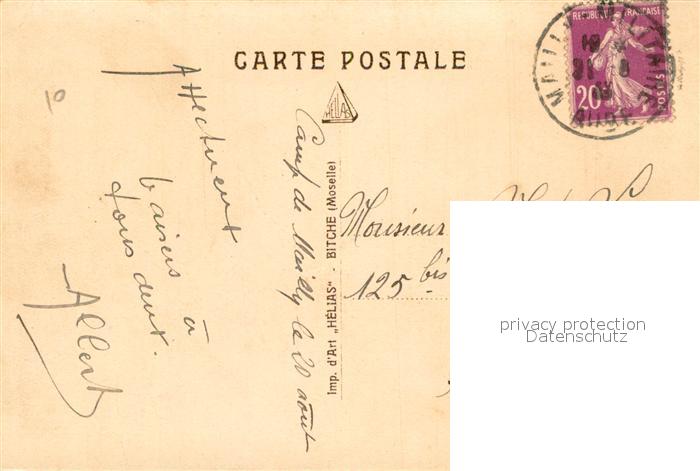 CARTE POSTALE
REPUBLIQUE FRANÇAISE
20c
POSTES
HELIAS
Imp. d'Art „HÉLIAS" - BITCHE (Moselle)
Camp de Mailly le 20 août
Affectueux
baisers à
tous deux.
Albert
Monsieur
125 bis
privacy protection
Datenschutz